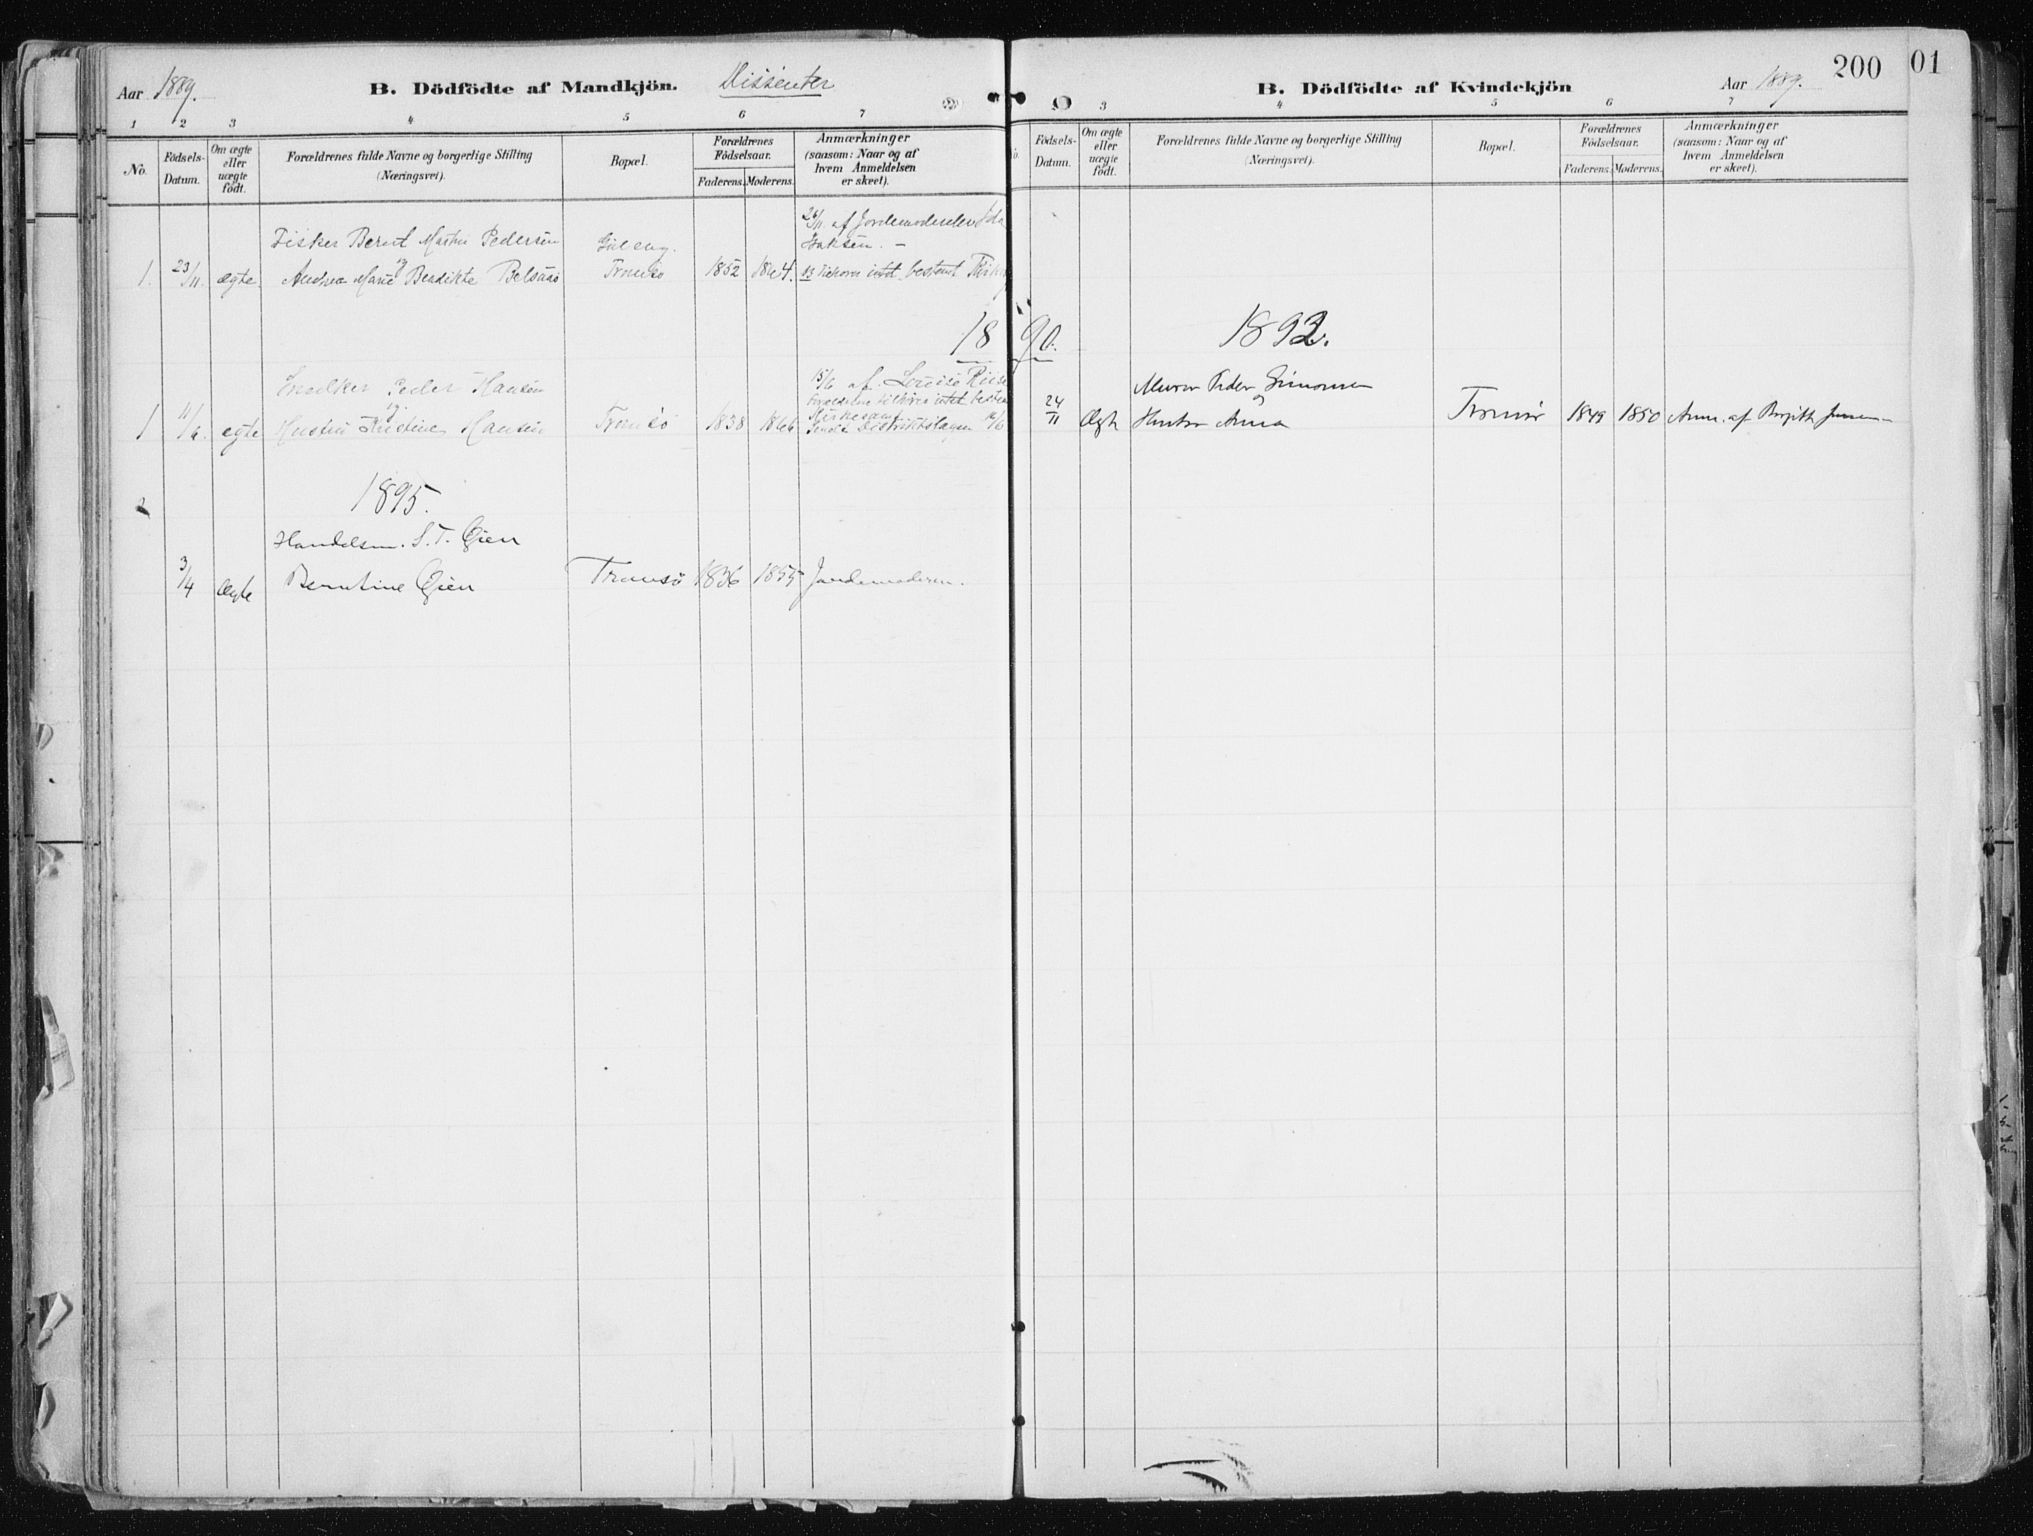 Aar 1889. B. Dödfödte af Mandkjön. Dissenter
1 2 3 4 5 6 7
No. Födsels-Datum. Om ægte eller uægte födt. Forældrenes fulde Navne og borgerlige Stilling (Næringsvei). Bopæl. Forældrenes Födselsaar. Faderens. Moderens. Anmærkninger (saasom: Naar og af hvem Anmeldelsen er skeet).
Fisker Bernt Martin Pedersen
og
1. 23/11. ægte Andrea Marie Benedikte Tromsø 1852 1864.
26/11. af Jordemoderelev Ida
Isaksen. –
intet bestemt
1890.
Snedker Peder Hansen
og
1 11/6. ægte Hustru Kristine Hansen Tromsø 1838 1866
15/6 af Louise Riise
intet bestemt
Kirkesamf.
Sendt Distriktslægen 16/6
2
1895.
Handelsm. S. T. Øien
3/4 Ægte Berntine Øien Tromsø 1836 1855 Jordemoderen.
B. Dödfödte af Kvindekjön Aar 1889. 200 01
3 4 5 6 7
No. Födsels-Datum. Om ægte eller uægte födt. Forældrenes fulde Navne og borgerlige Stilling (Næringsvei). Bopæl. Forældrenes Födselsaar. Faderens. Moderens. Anmærkninger (saasom: Naar og af hvem Anmeldelsen er skeet).
1892.
Murer Peder Simonsen
og
24/11 Ægte Hustru Anna Tromsø 1849 1850 Anm. af Birgitte Jensen